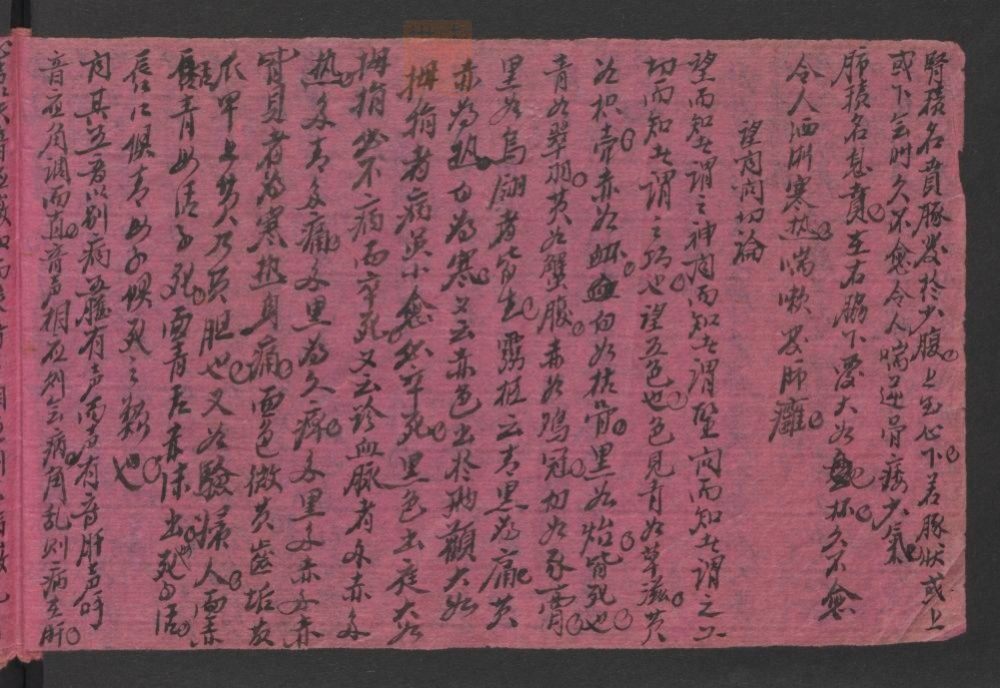 腎積名賁豚发於少腹上至心下若豚狀或上
或下无时久不愈令人喘逆骨痿少氣
肺積名息賁在右脇下覆大如杯久不愈
令人洒淅寒热喘嗽发肺癰
望聞問切論
望而知之謂之神聞而知之謂聖問而知之謂之工
切而知之謂之巧也望五色也色見青如草滋黄
如枳实赤如衃血白如枯骨黑如炲皆死也
青如翠羽黄如蟹腹赤如鸡冠白如豕膏
黑如烏翮者皆生霛枢云青黑為痛黄
赤為热白為寒又云赤色出於兩顴大如
拇指者病虽小愈必卒死黑色出庭大如
拇指必不病而卒死又云診血脉者多赤多
热多青多痛多黑為久痹多黑多赤多
皆見者為寒热身痛面色微黄齒垢黄
爪甲上黄乃黄胆也又如驗婦人面赤
舌青母活子死面青舌赤沫出死子活
唇口俱青母子俱死之類也
聞其五音以别病五臟有声而声有音肝声呼
音应角調而直音声相应则无病角乱则病在肝